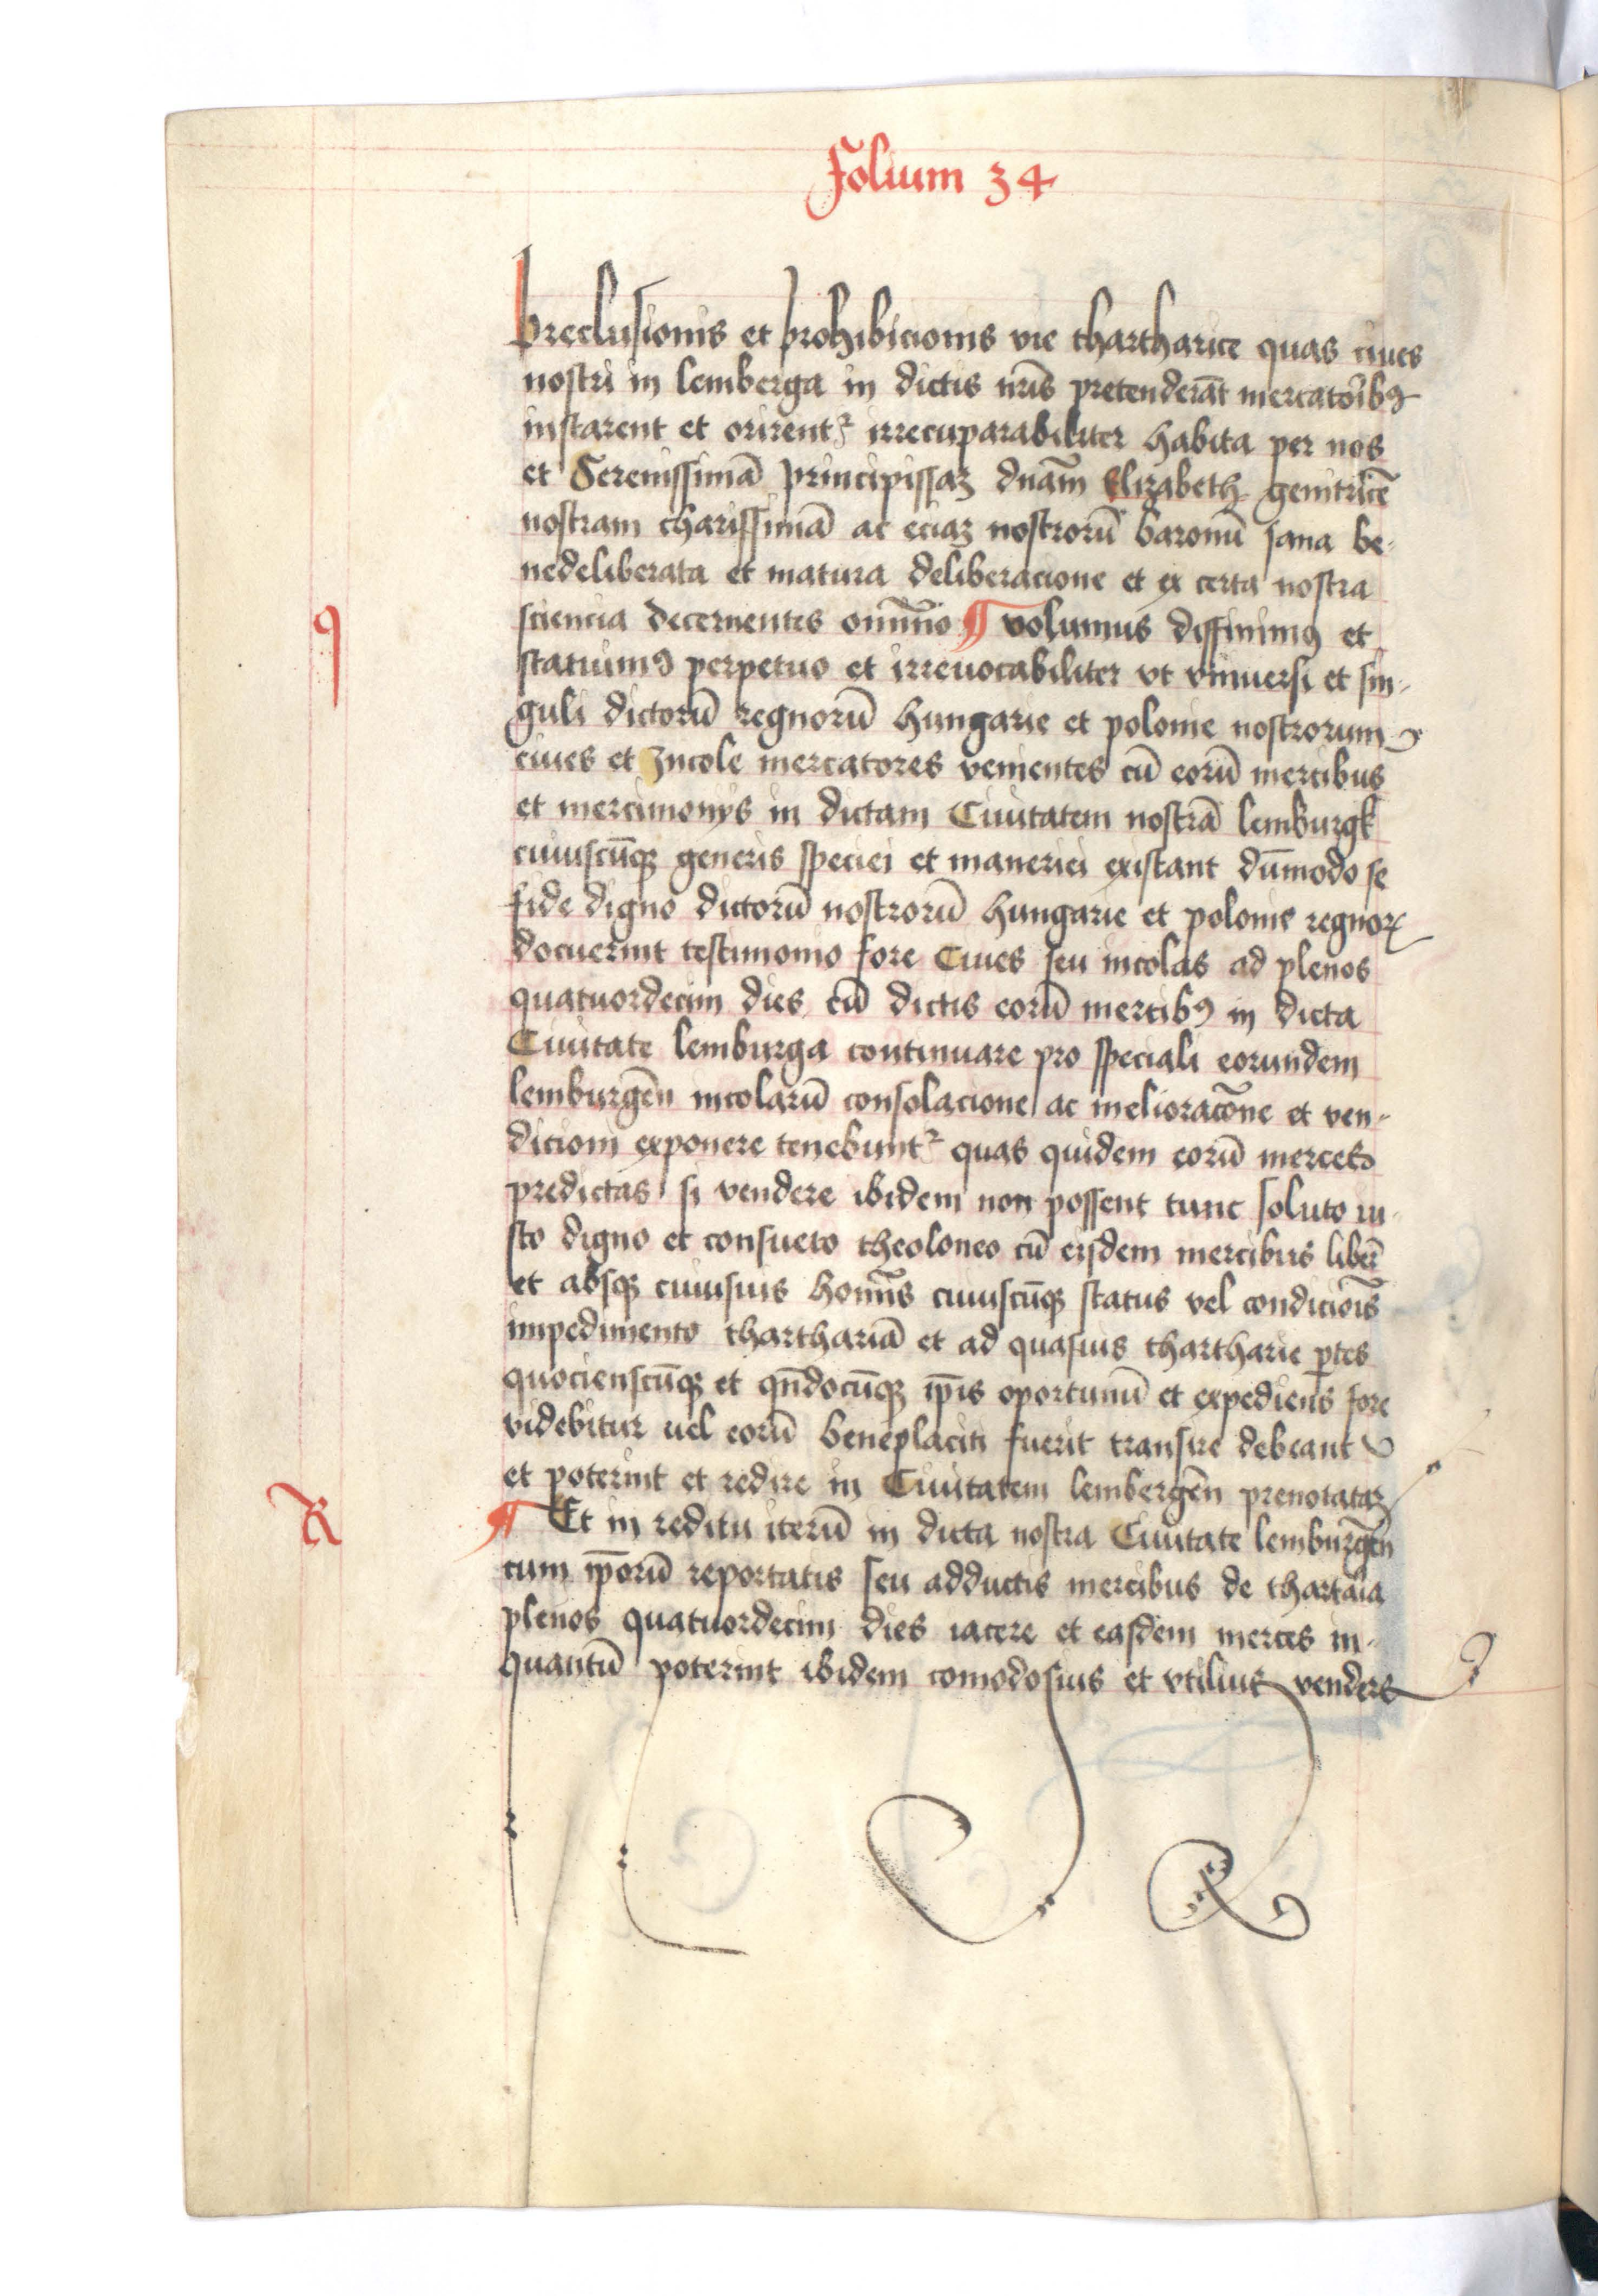 Folium 34
preclusionis et prohibicionis vie thartharice quas ciues
nostri in lemberga in dictis nr̄is pretenderāt mercatoribꝰ
instarent et orirentᷣ irrecuparabiliter habita per nos
et Serenissimā principissaꝫ dnām Elizabeth genitricē
nostram charissimā ac eciaꝫ nostrorū baronū sana be-
nedeliberata et matura deliberacione et ex certa nostra
q
sciencia decernentes omīno ¶ volumus diffinimꝰ et
statuimꝰ perpetuo et irreuocabiliter vt vniuersi et sin-
guli dictorū regnorū hungarie et polonie nostrorum
ciues et Incole mercatores venientes cū eorū mercibus
et mercimonijs in dictam Ciuitatem nostrā lemburgk
cuiuscūqꝫ generis speciei et maneriei existant dūmodo se
fide digno dictorū nostrorū hungarie et polonie regnoꝝ
docuerint testimonio fore Ciues seu incolas ad plenos
quatuordecim dies cū dictis eorū mercibꝰ in dicta
Ciuitate lemburga continuare pro speciali eorundem
lemburgēn incolarū consolacione ac melioracōne et ven-
dicioni exponere tenebuntᷣ quas quidem eorū merces
predictas si vendere ibidem non possent tunc soluto iu-
sto digno et consueto theoloneo cū eisdem mercibus liberē
et absqꝫ cuiusuis homīs cuiuscūqꝫ status vel condiciōis
impedimento tharthariā et ad quasuis thartharie ꝑtes
quocienscūqꝫ et qn̄docūqꝫ ip̄is oportunū et expediens fore
videbitur uel eorū beneplaciti fuerit transire debeant
et poterint et redire in Ciuitatem lembergēn prenotataꝫ
R
¶ Et in reditu iterū in dicta nostra Ciuitate lemburgēn
cum ip̄orū reportatis seu adductis mercibus de thartaria
plenos quatuordecim dies iacere et easdem merces in-
quantū poterint ibidem comodosius et vtilius vendere